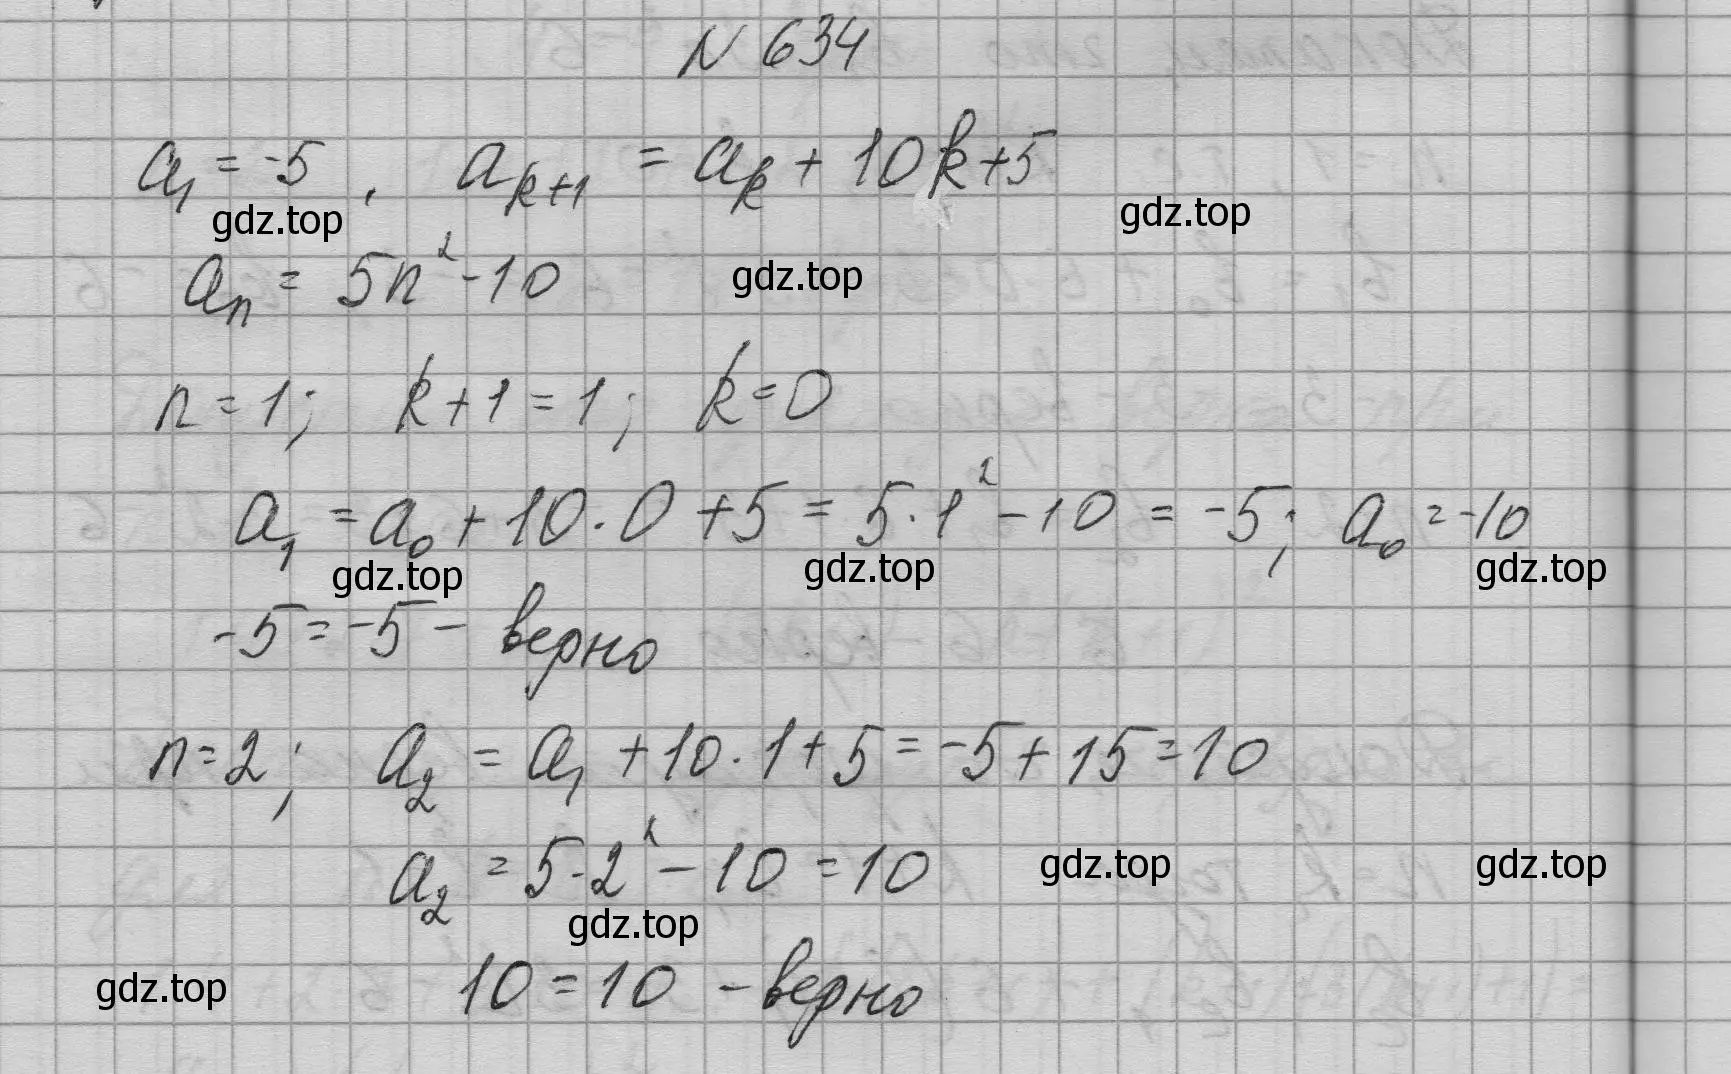 N 634
a₁ = -5, aₖ₊₁ = aₖ + 10k + 5
gdz.top gdz.top
aₙ = 5n² - 10 gdz.top
n = 1; k + 1 = 1; k = 0
a₁ = a₀ + 10 · 0 + 5 = 5 · 1² - 10 = -5; a₀ = -10
gdz.top gdz.top gdz.top
-5 = -5 - верно
n = 2; a₂ = a₁ + 10 · 1 + 5 = -5 + 15 = 10
a₂ = 5 · 2² - 10 = 10 gdz.top gdz.top
gdz.top
gdz.top 10 = 10 - верно